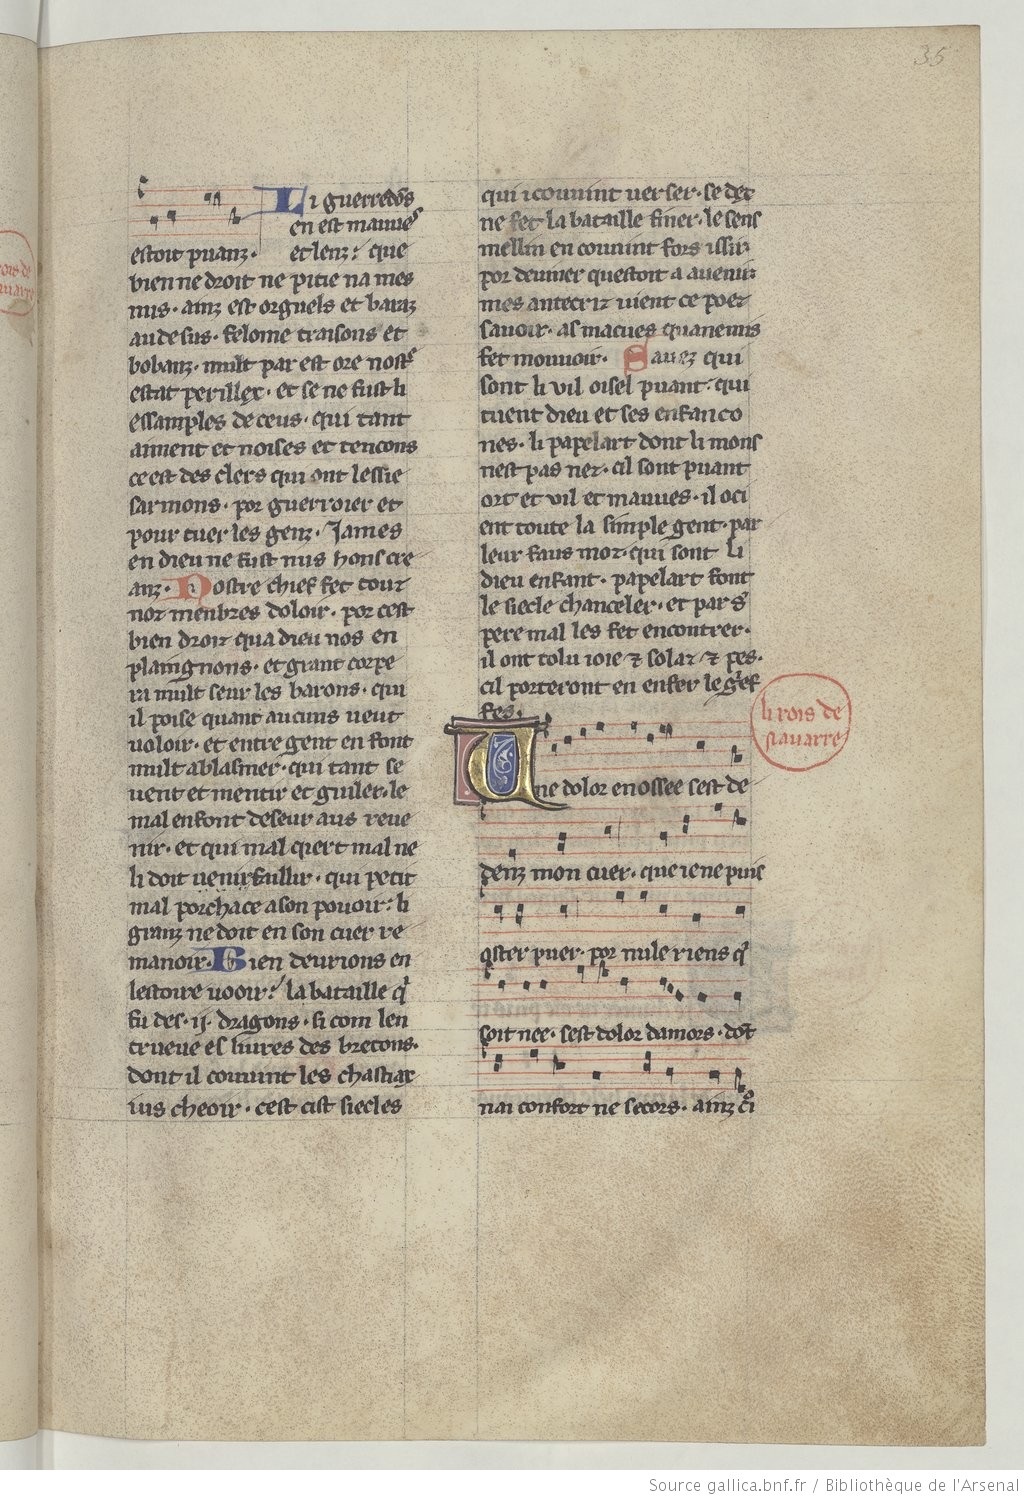 35
Li guerredõs
en est mauues
estoit puanz. et lenz: que
bien ne droit ne pitie na mes
mis. ainz est orguels et baraz
au desus. felonie traisons et
bobanz. mult par est ore nost'
estat perillex. et se ne fust li
essamples de ceus. qui tant
aiment et noises et tencons
ce est des clers qui ont lessie
sarmons. por guerroier et
pour tuer les genz. James
en dieu ne fust nus hons cre
anz. Nostre chief fet touz
noz menbres doloir. por cest
bien droiz qua dieu nos en
plaingnons. et grant corpe
ra mult seur les barons. qui
il poise quant aucuns ueut
ualoir. et entre gent en font
mult ablasmer. qui tant se
uent et mentir et guiler. le
mal en font deseur aus reue
nir. et qui mal qiert mal ne
li doit uenir faillir. qui petit
mal porchace a son pouoir: li
granz ne doit en son cuer re
manoir. Bien deurions en
lestoire uooir: la bataille q'
fu des .ij. dragons. si com len
trueue es liures des bretons.
dont il couuint les chastiax
ius cheoir. cest cist siecles
qui i couuint uerser. se dex
ne fet la bataille finer. le sens
mellin en couuint fors issir
por deuiner questoit a auenir
mes antecriz uient ce poez
sauoir. as macues quanemis
fet mouuoir. Sauez qui
sont li vil oisel puant. qui
tuent dieu et ses enfanco
nes. li papelart dont li mons
nest pas nez. cil sont puant
ort et vil et mauues. il oci
ent toute la simple gent. par
leur faus moz. qui sont li
dieu enfant. papelart font
le siecle chanceler. et par s'
pere mal les fet encontrer.
il ont tolu ioie ⁊ solaz ⁊ pes.
cil porteront en enfer le g'ef
fes.
li rois de
nauarre
Une dolor en ossee sest de
denz mon cuer. que ie ne puis
oster puer. por nule riens q'
soit nee. sest dolor damors. dõt
nai confort ne secors. ainz c'i
Source gallica.bnf.fr / Bibliothèque de l'Arsenal